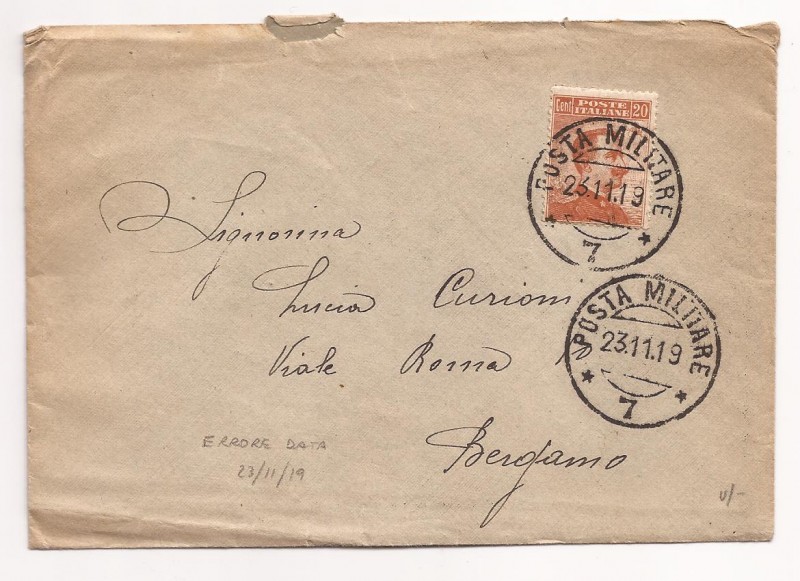 Cent POSTE ITALIANE 20
POSTA MILITARE
23.11.19
7
POSTA MILITARE
23.11.19
7
Signorina
Lucia Curioni
Viale Roma 10
Bergamo
ERRORE DATA
23/11/19